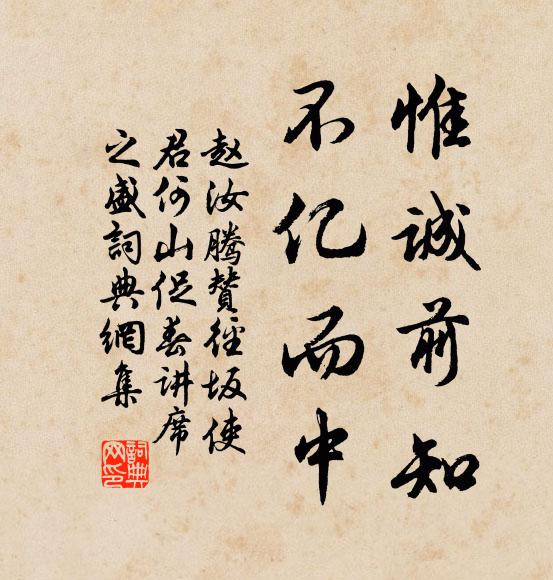 惟誠前知
不亿而中
赵汝腾赞徑坂使
君何山促春讲席
之盛詞典網集
詞典网印